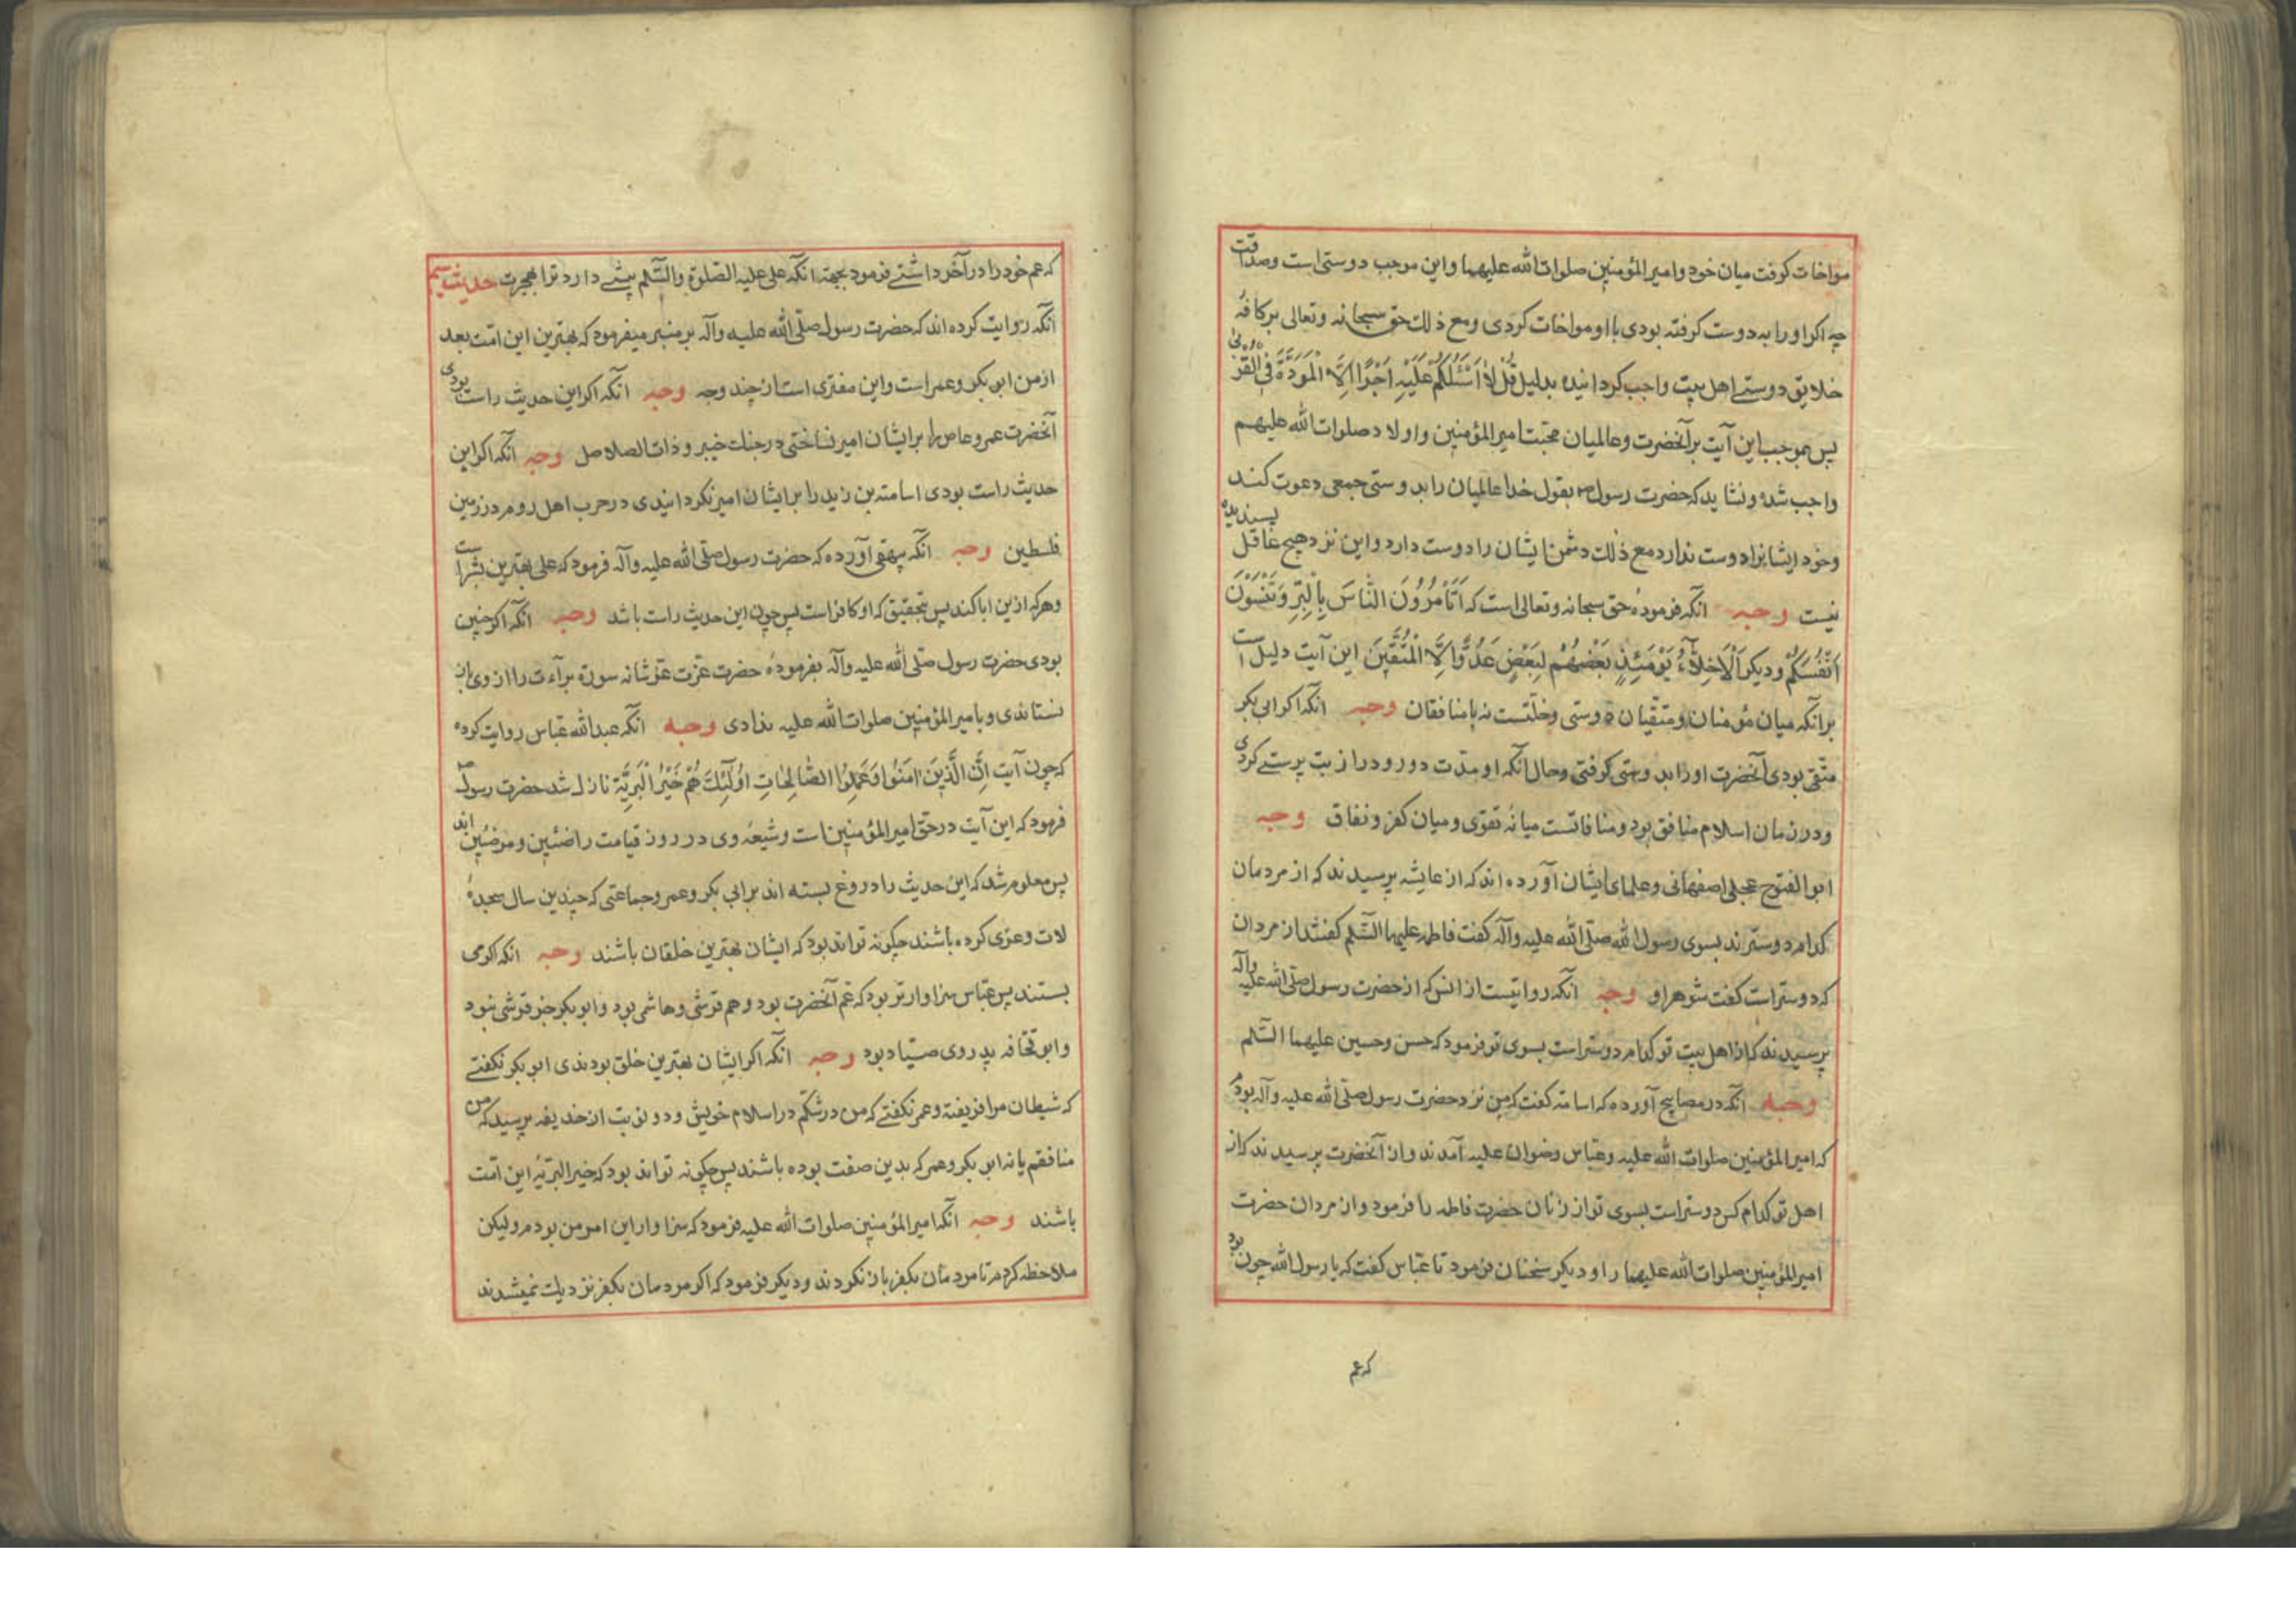 مواخات کرفت میان خود و امیر المؤمنین صلوات الله علیهما واین موجب دوستی است وصداقت
چه اکر او را به دوست کرفته بودی با او مواخات کردی ومع ذلک حق سبحانه وتعالی بر کافهٔ
خلایق دوستی اهل بیت واجب کردانیده بدلیل قُلْ لاٰ اَسْئَلُكُمْ عَلَيْهِ اَجْرًا اِلَّا الْمَوَدَّةَ فِي الْقُرْبىٰ
پس بموجب این آیت بر آنحضرت وعالمیان محبت امیر المؤمنین واولاد صلوات الله علیهم
واجب شد ونشاید که حضرت رسول ص بقول خدا عالمیان را بدوستی جمعی دعوت کند
وخود ایشانرا دوست ندارد مع ذلک دشمن ایشان را دوست دارد واین نزد هیچ عاقل پسندیده
نیست وجه انکه فرمودهٔ حق سبحانه وتعالی است که اَتَأْمُرُونَ النّٰاسَ بِالْبِرِّ وَتَنْسَوْنَ
اَنْفُسَكُمْ ودیکر اَلْاَخِلّٰآءُ يَوْمَئِذٍ بَعْضُهُمْ لِبَعْضٍ عَدُوٌّ اِلَّا الْمُتَّقِينَ این آیت دلیل است
برانکه میان مؤمنان ومتقیان دوستی وخلّتست نه با منافقان وجه انکه اکر ابی بکر
متّقی بودی آنحضرت اورا بدوستی کرفتی وحال آنکه او مدّت دور ودراز بت پرستی کردی
ودر زمان اسلام منافق بود ومنافاتست میانهٔ تقوی ومیان کفر ونفاق وجه
ابو الفتوح عجلی اصفهانی وعلمای ایشان آورده اند که از عایشه پرسیدند که از مردمان
کدام دوسترند بسوی رسول الله صلّی الله علیه وآله کفت فاطمه علیها السّلم کفتند از مردان
که دوستر است کفت شوهر او وجه آنکه روایتست از انس که از حضرت رسول صلّی الله علیه وآله
پرسیدند که از اهل بیت تو کدام دوستر است بسوی تو فرمود که حسن وحسین علیهما السّلم
وجه انکه در مصابیح آورده که اسامه کفت که من نزد حضرت رسول صلّی الله علیه وآله بودم
که امیر المؤمنین صلوات الله علیه وعباس رضوان علیه آمدند واز آنحضرت پرسیدند که از
اهل تو کدام کس دوستر است بسوی تو از زنان حضرت فاطمه را فرمود واز مردان حضرت
امیر المؤمنین صلوات الله علیهما را ودیکر سخنان فرمود تا عباس کفت که یا رسول الله چون بود
که عم
که عم خود را در آخر داشتی فرمود بجهة انکه علی علیه الصّلوة والسّلم پیشی دارد ترا بهجرت حدیث سیم
آنکه روایت کرده اند که حضرت رسول صلّی الله علیه وآله بر منبر میفرمود که بهترین این امّت بعد
از من ابی بکر وعمر است واین مفتری است از چند وجه وجه انکه اکر این حدیث راست بودی
آنحضرت عمرو عاص را بر ایشان امیر نساختی در جنک خیبر وذات السلاسل وجه آنکه اکر این
حدیث راست بودی اسامة بن زید را بر ایشان امیر نکردانیدی در حرب اهل روم در زمین
فلسطین وجه انکه بیهقی آورده که حضرت رسول صلّی الله علیه وآله فرمود که علی بهترین بشر است
وهر که ازین ابا کند پس بتحقیق که او کافر است پس چون این حدیث راست باشد وجه انکه اکر چنین
بودی حضرت رسول صلّی الله علیه وآله بفرمودهٔ حضرت عزّت عزّ شانه سورة برآءت را از وی باز
نستاندی وبا میر المؤمنین صلوات الله علیه ندادی وجه آنکه عبد الله عبّاس روایت کرده
که چون آیت اِنَّ الَّذِينَ اٰمَنُوا وَعَمِلُوا الصّٰالِحٰاتِ اُولٰٓئِكَ هُمْ خَيْرُ الْبَرِيَّةِ نازل شد حضرت رسول ص
فرمود که این آیت در حق امیر المؤمنین است وشیعهٔ وی در روز قیامت راضئین ومرضئین اند
پس معلوم شد که این حدیث را دروغ بسته اند بر ابی بکر وعمر وجماعتی که چندین سال سجدهٔ
لات وعزی کرده باشند چکونه تواند بود که ایشان بهترین خلقان باشند وجه انکه اکر می
بستند پس عبّاس سزاوارتر بود که عم آنحضرت بود وهم قرشی وهاشمی بود وابوبکر جز قرشی نبود
وابو قحافه پدر وی صیّاد بود وجه انکه اکر ایشان بهترین خلق بودندی ابو بکر نکفتی
که شیطان مرا فریفته وعمر نکفتی که من در شکّم در اسلام خویش ودو نوبت از حذیفه پرسید که من
منافقم یا نه ابی بکر وعمر که بدین صفت بوده باشند پس چکونه تواند بود که خیر البریّهٔ این امّت
باشند وجه آنکه امیر المؤمنین صلوات الله علیه فرمود که سزاوار این امر من بودم ولیکن
ملاحظه کردم تا مردمان بکفر باز نکردند ودیکر فرمود که اکر مردمان بکفر نزدیک نمیشدند